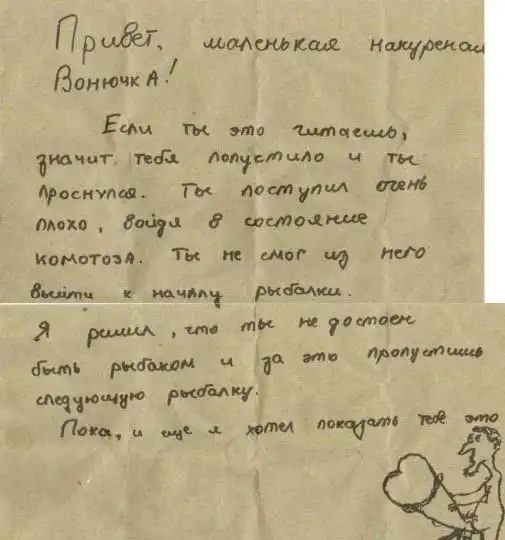 Привет, маленькая накуреная
Вонючка!
Если ты это читаешь,
значит тебя попустило и ты
проснулся. Ты поступил очень
плохо, войдя в состояние
комотоза. Ты не смог из него
выйти к началу рыбалки.
Я решил, что ты не достоен
быть рыбаком и за это пропустишь
следующую рыбалку.
Пока, и еще я хотел показать тебе это